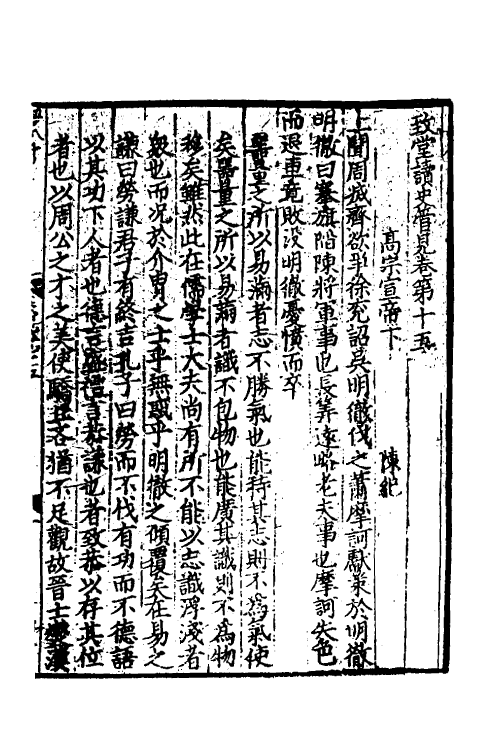 致堂讀史管見卷第十五
高宗宣帝下 陳紀
上聞周滅齊欲爭徐兗詔吳明徹伐之蕭摩訶獻策於明徹
明徹曰搴旗陷陳將軍事也長筭遠略老夫事也摩訶失色
而退軍竟敗没明徹憂憤而卒
器量之所以易滿者志不勝氣也能持其志則不爲氣使
矣器量之所以易滿者識不包物也能廣其識則不爲物
移矣雖然此在儒學士大夫尚有所不能以志識浮淺者
衆也而况於介胄之士乎無恠乎明徹之傾覆矣在易之
謙曰勞謙君子有終吉孔子曰勞而不伐有功而不德語
以其功下人者也德言盛禮言恭謙也者致恭以存其位
者也以周公之才之美使驕且吝猶不足觀故晉士燮漢